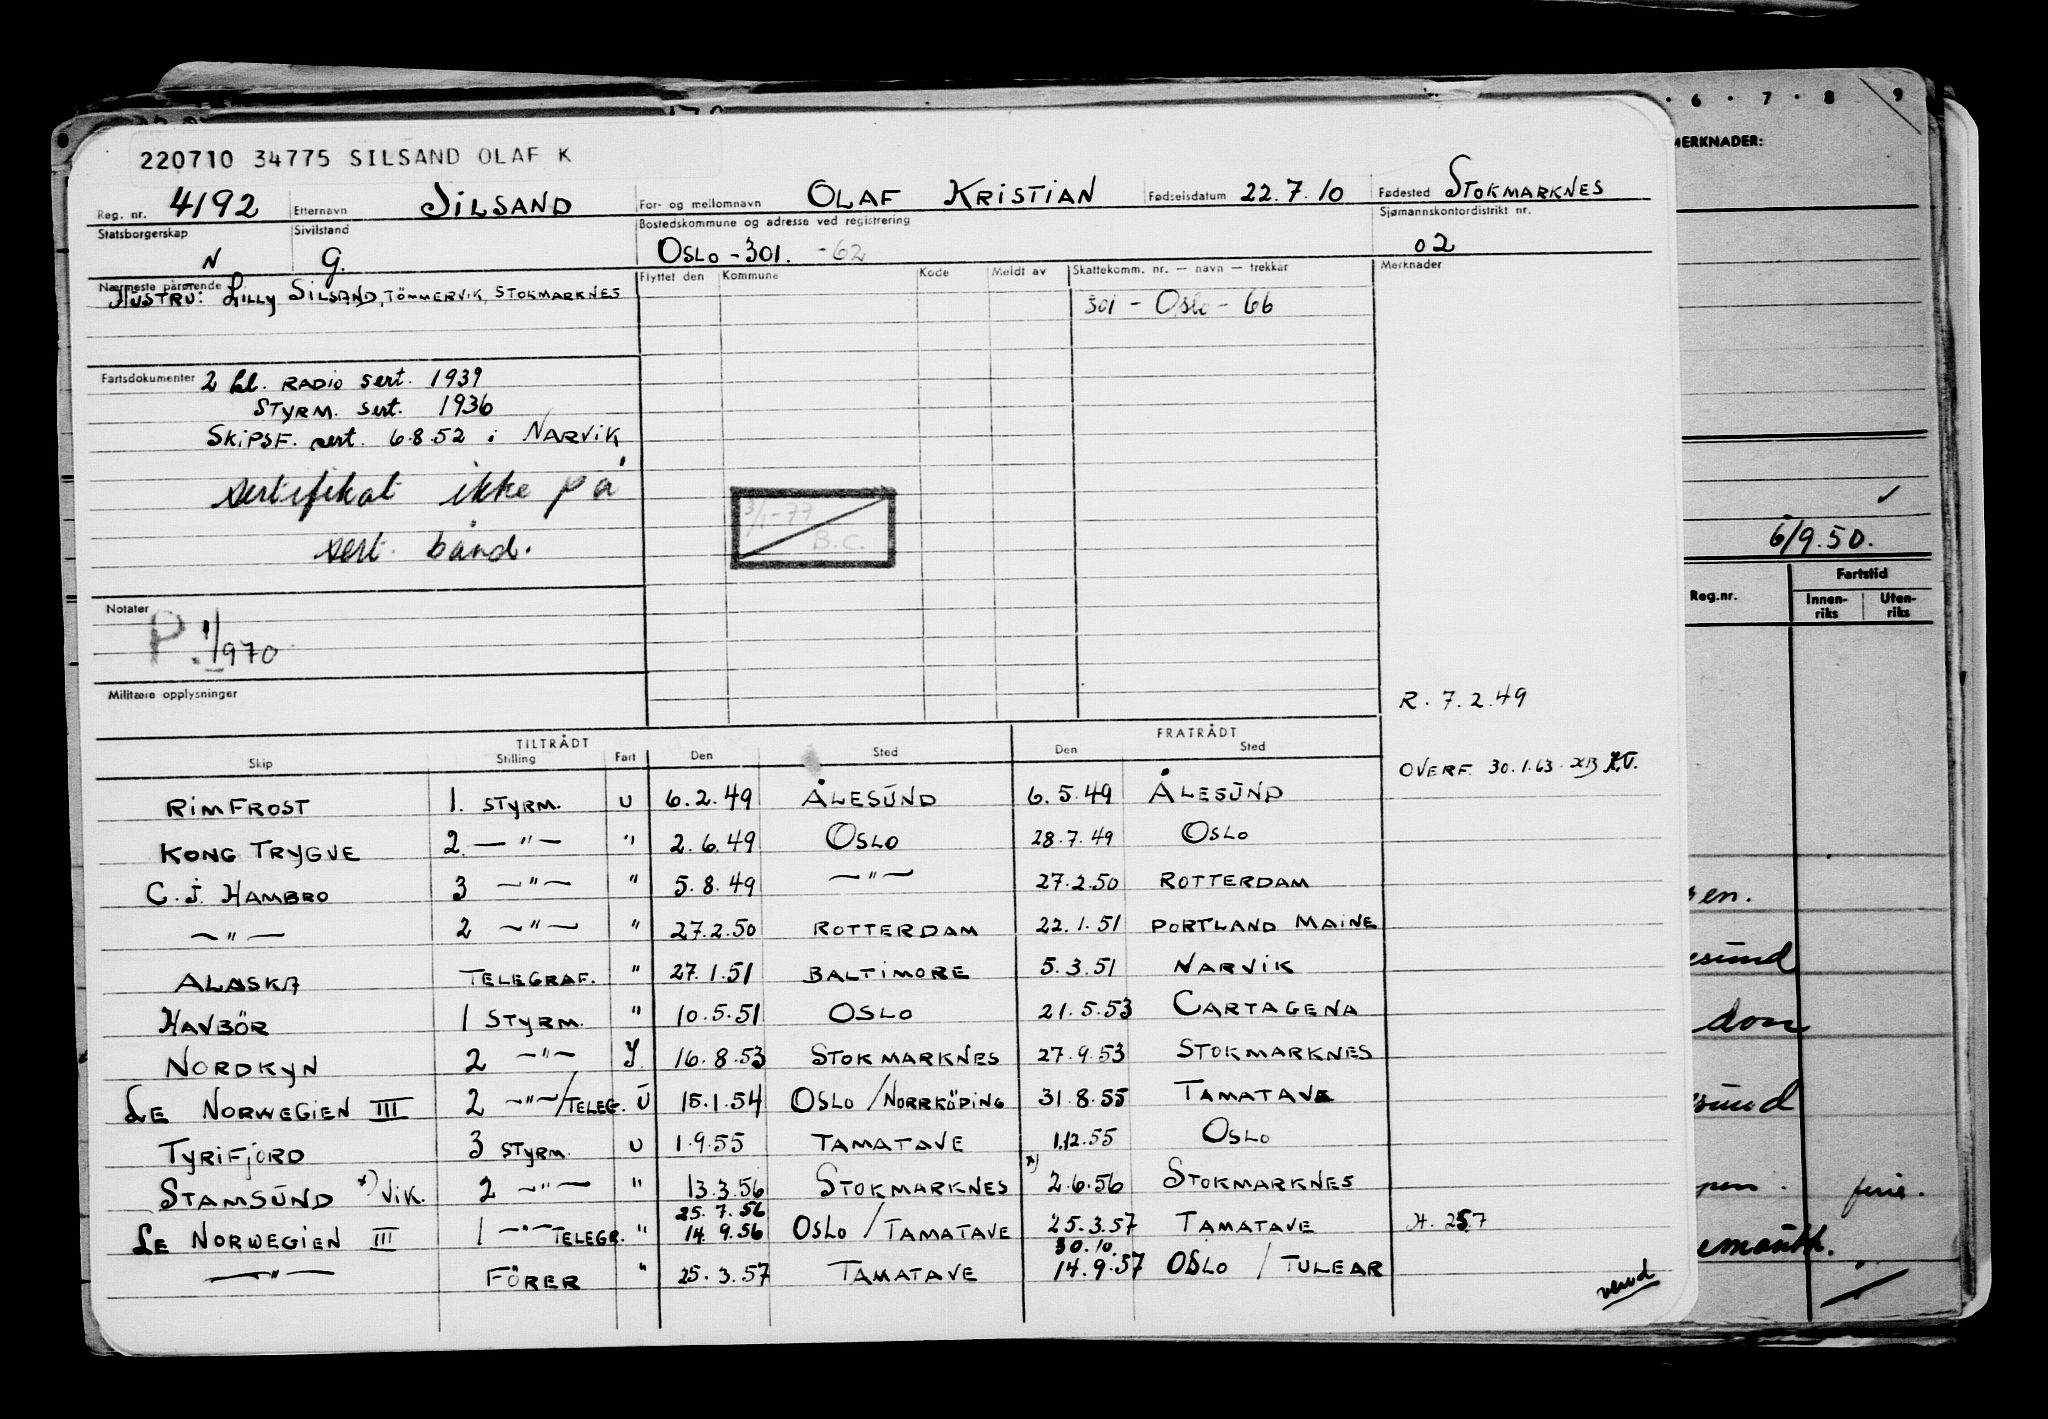 220710 34775 SILSAND OLAF K
Reg. nr. 4192 Etternavn SILSAND For- og mellomnavn OLAF KRISTIAN Fødselsdatum 22.7.10 Fødested STOKMARKNES
Statsborgerskap N Sivilstand G. Bostedskommune og adresse ved registrering OSLO - 301. - 62 Sjømannskontordistrikt nr. 02
Nærmeste pårørende Flyttet den Kommune Kode Meldt av Skattekomm. nr. — navn — trekkår Merknader
HUSTRU: LILLY SILSAND, TÖMMERVIK, STOKMARKNES 301 - Oslo - 66
Fartsdokumenter 2 kl. RADIO sert. 1939
STYRM. sert. 1936
SKIPSF. sert. 6.8.52 i NARVIK
sertifikat ikke på
sert. bånd.
3/1-77
B.C.
Notater
P. 1/1970
Militære opplysninger
R. 7.2.49
TILTRÅDT FRATRÅDT
Skip Stilling Fart Den Sted Den Sted
OVERF. 30.1.63
RIMFROST 1. STYRM. U 6.2.49 ÅLESUND 6.5.49 ÅLESUND
KONG TRYGVE 2. —"— " 2.6.49 OSLO 28.7.49 OSLO
C.J. HAMBRO 3 —"— " 5.8.49 —"— 27.2.50 ROTTERDAM
—"— 2 —"— " 27.2.50 ROTTERDAM 22.1.51 PORTLAND MAINE
ALASKA TELEGRAF. " 27.1.51 BALTIMORE 5.3.51 NARVIK
HAVBÖR 1 STYRM. " 10.5.51 OSLO 21.5.53 CARTAGENA
NORDKYN 2 —"— I 16.8.53 STOKMARKNES 27.9.53 STOKMARKNES
LE NORWEGIEN III 2 —"—/TELEG. U 15.1.54 OSLO / NORRKÖPING 31.8.55 TAMATAVE
TYRIFJORD 3 STYRM. U 1.9.55 TAMATAVE 1.12.55 OSLO
STAMSUND x) VIK. 2 —"— " 13.3.56 STOKMARKNES x) 2.6.56 STOKMARKNES
LE NORWEGIEN III 1 —"— TELEGR. " 25.7.56 14.9.56 OSLO / TAMATAVE 25.3.57 TAMATAVE H. 257
—"— FÖRER " 25.3.57 TAMATAVE 30.10. 14.9.57 OSLO / TULEAR
vend
6 . 7 . 8 9
MERKNADER:
6/9.50.
Reg.nr. Fartstid
Innen-riks Uten-riks
sen.
esund
don
sund
ferie.